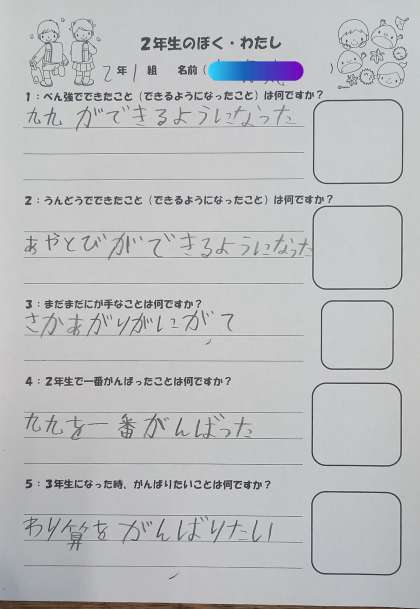 2年生のぼく・わたし
2年 1 組 名前(
1:べん強でできたこと(できるようになったこと)は何ですか?
九九 ができるようになった
2:うんどうでできたこと(できるようになったこと)は何ですか?
あやとびができるようになった
3:まだまだにが手なことは何ですか?
さかあがりがにがて
4:2年生で一番がんばったことは何ですか?
九九を一番がんばった
5:3年生になった時、がんばりたいことは何ですか?
わり算をがんばりたい